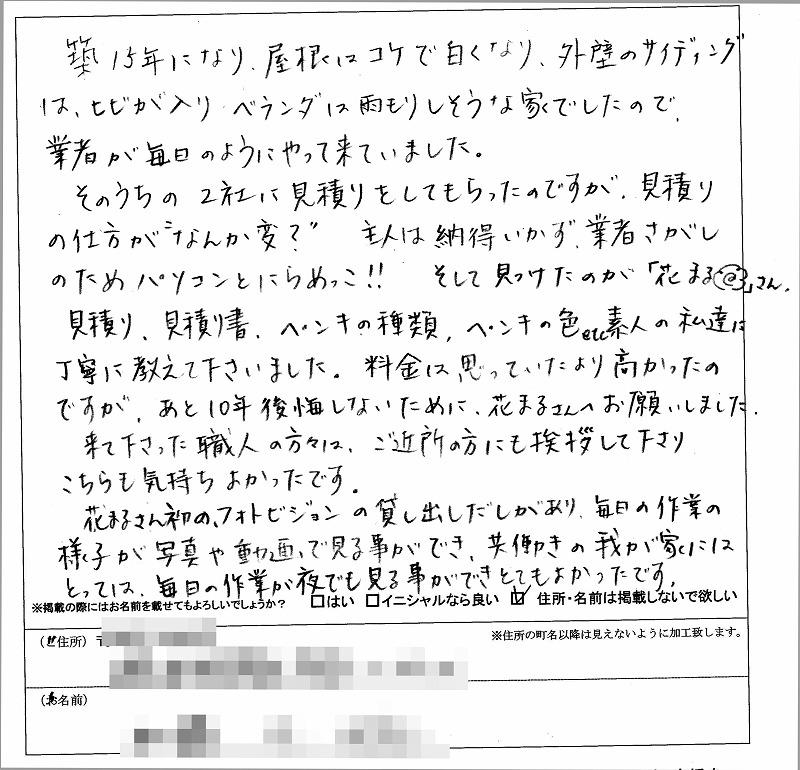 築15年になり、屋根はコケで白くなり、外壁のサイディング
は、ヒビが入り ベランダは雨もりしそうな家でしたので、
業者が毎日のようにやって来ていました。
そのうちの2社に見積りをしてもらったのですが、見積り
の仕方が“なんか変?” 主人は納得いかず、業者さがし
のためパソコンとにらめっこ!! そして見つけたのが「花まる@」さん。
見積り、見積り書、ペンキの種類、ペンキの色etc素人の私達に
丁寧に教えて下さいました。料金は、思っていたより高かったの
ですが、あと10年後悔しないために、花まるさんへお願いしました。
来て下さった職人の方々は、ご近所の方にも挨拶して下さり
こちらも気持ちよかったです。
花まるさん初の、フォトビジョンの貸し出しだしがあり、毎日の作業の
様子が写真や動画で見る事ができ、共働きの我が家には
とっては、毎日の作業が夜でも見る事ができとてもよかったです。
※掲載の際にはお名前を載せてもよろしいでしょうか? □はい □イニシャルなら良い ☑ 住所・名前は掲載しないで欲しい
(ご住所) 〒 ※住所の町名以降は見えないように加工致します。
(お名前)